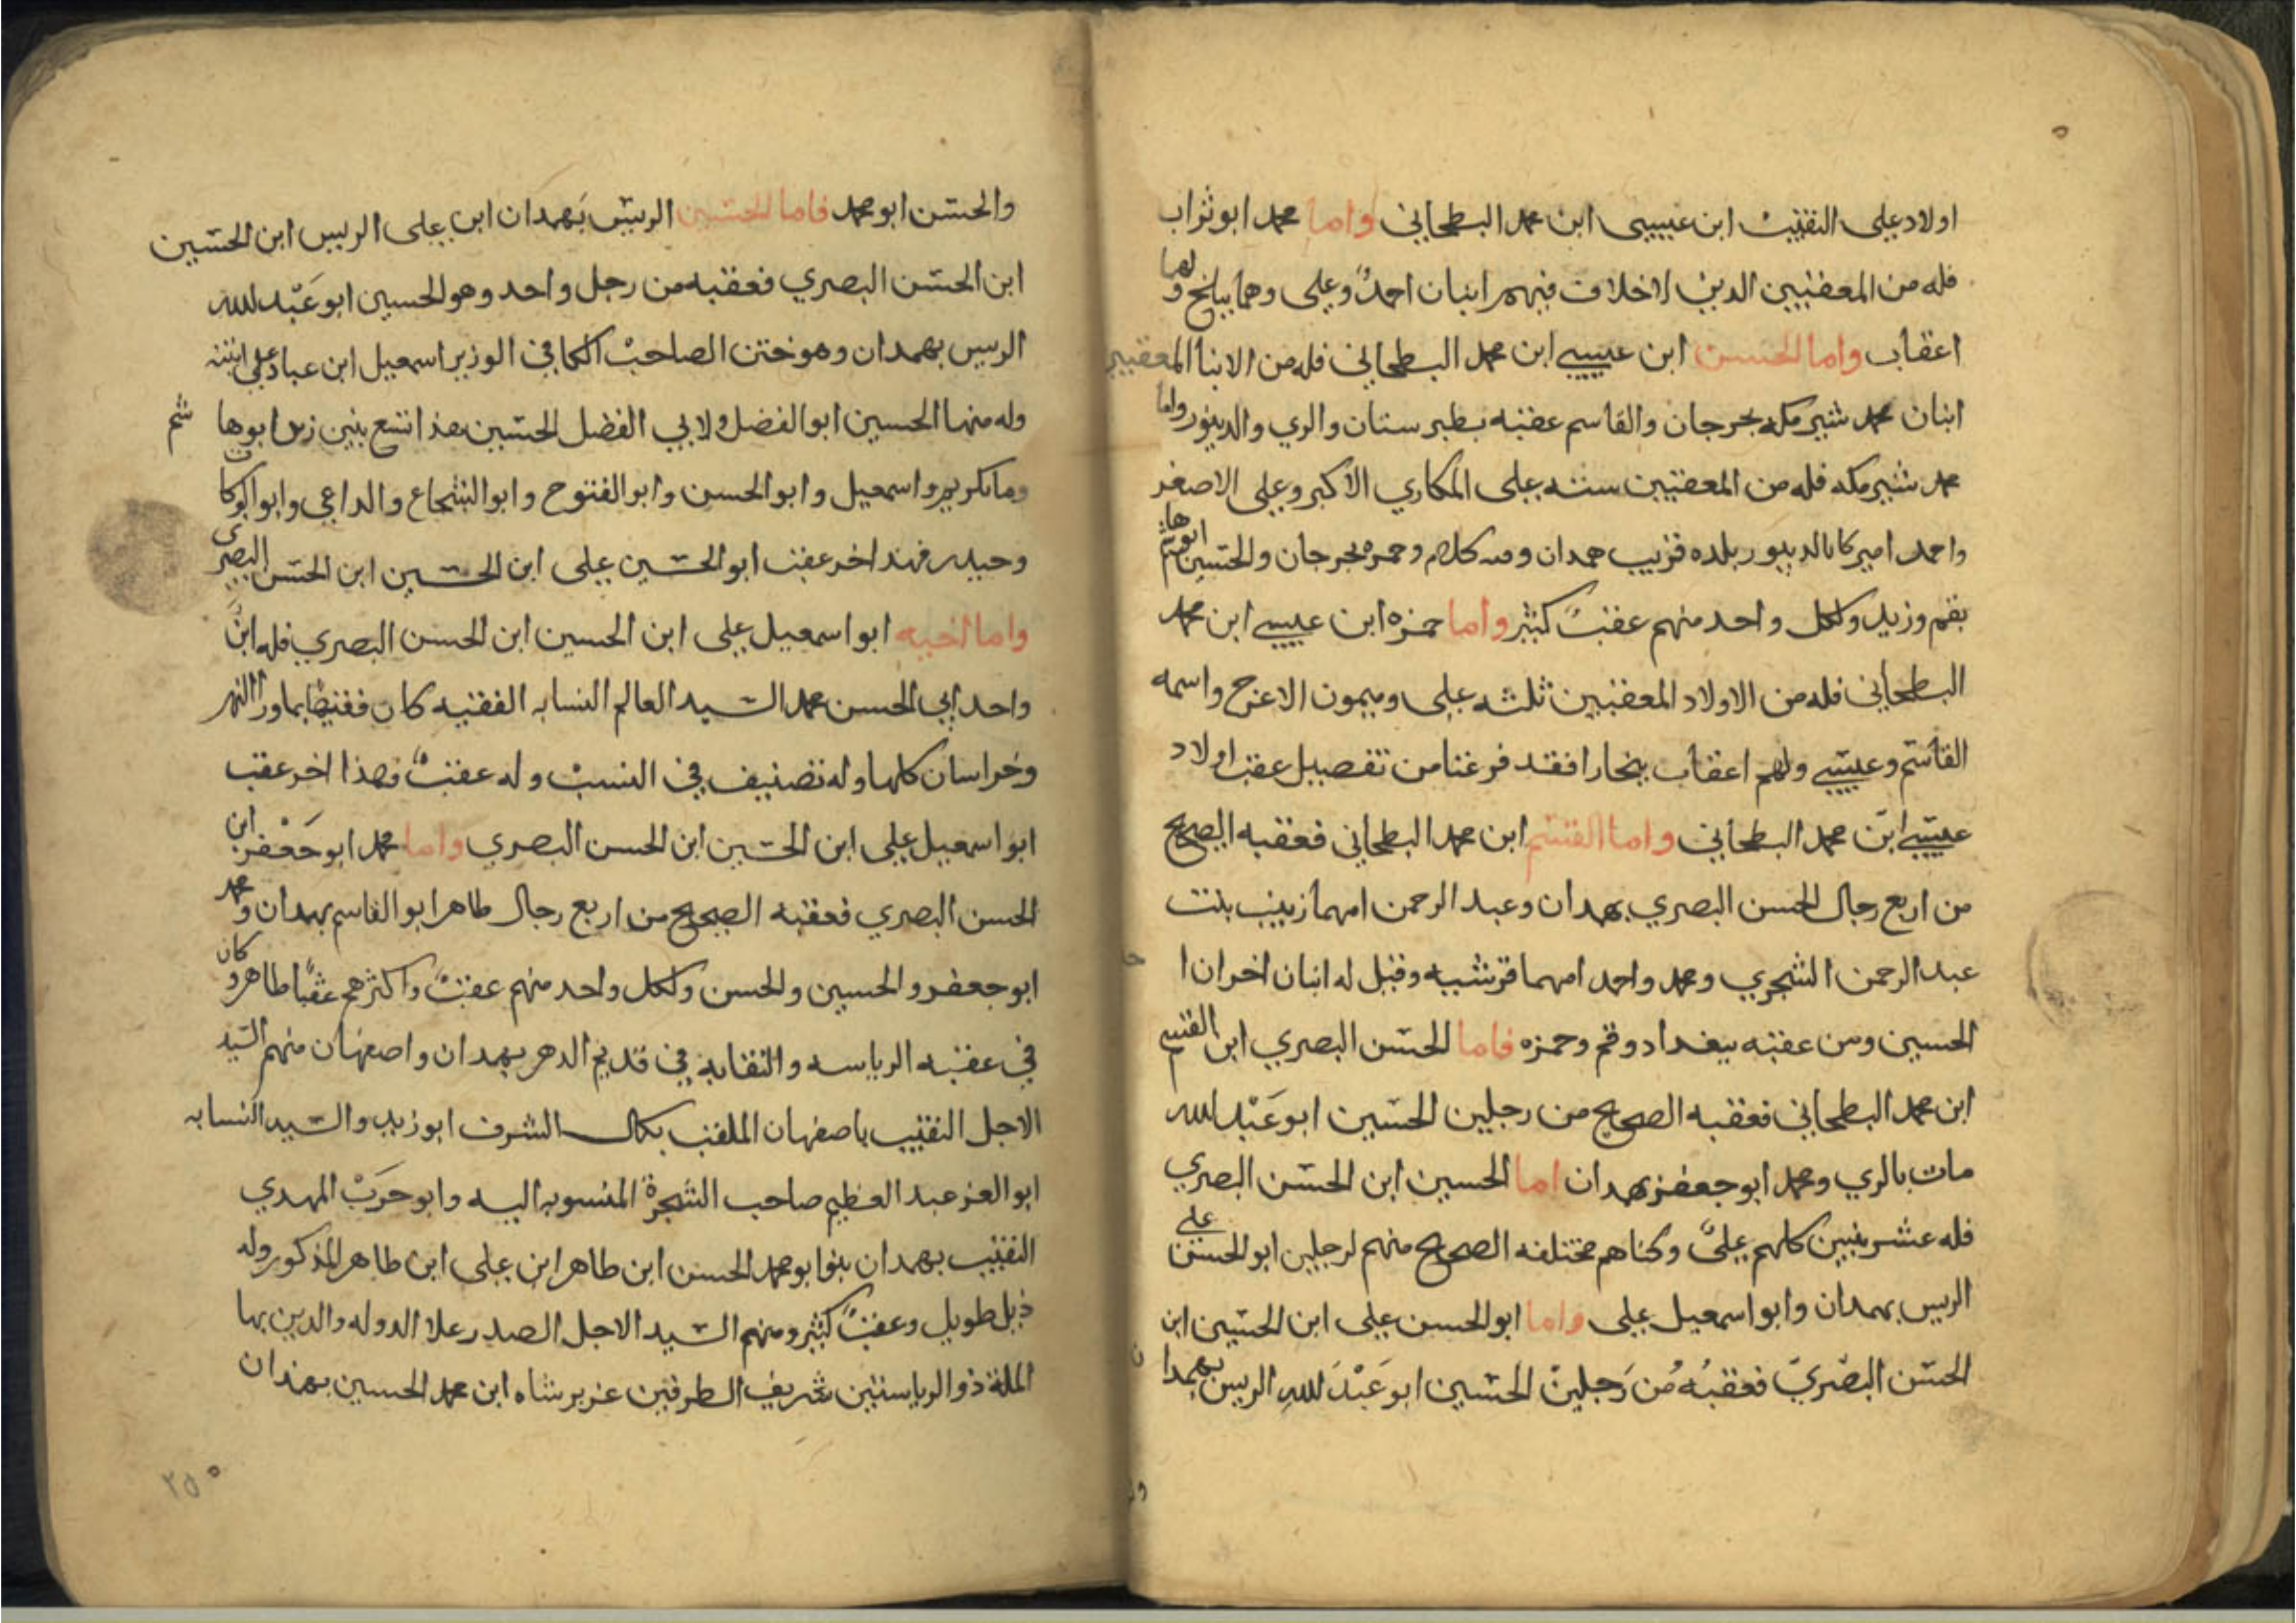 اولاد على النقيب ابن عيسى ابن محمد البطحاني واما محمد ابو تراب
فله من المعقبين الذين لا خلاف فيهم ابنان احمد وعلى وهما ببلخ ولهما
اعقاب واما الحسن ابن عيسى ابن محمد البطحاني فله من الابنا المعقبين
ابنان محمد شيرمكه بجرجان والقاسم عقبه بطبرستان والري والدينور واما
محمد شيرمكه فله من المعقبين سته على المكاري الاكبر وعلى الاصغر
واحمد اميركا بالدينور بلده قريب همدان و كلام وحمزه بجرجان والحسين ابو هاشم
بقم وزيد ولكل واحد منهم عقب كثير واما حمزه ابن عيسى ابن محمد
البطحاني فله من الاولاد المعقبين ثلثه على وميمون الاعرج واسمه
القاسم وعيسى ولهم اعقاب ببخارا فقد فرغنا من تفصيل عقب اولاد
عيسى ابن محمد البطحاني واما القسم ابن محمد البطحاني فعقبه الصحيح
من اربع رجال الحسن البصري بهمدان وعبد الرحمن امهما زينب بنت
عبد الرحمن الشجري ومحمد واحمد امهما قرشيه وقيل له ابنان اخران ا
الحسين ومن عقبه ببغداد وقم وحمزه فاما الحسن البصري ابن القسم
ابن محمد البطحاني فعقبه الصحيح من رجلين الحسين ابو عبد الله
مات بالري ومحمد ابو جعفر بهمدان اما الحسين ابن الحسن البصري
فله عشر بنين كلهم على وكناهم مختلفه الصحيح منهم لرجلين ابو الحسن على
الريس بهمدان وابو اسمعيل على واما ابو الحسن على ابن الحسين ابن
الحسن البصري فعقبه من رجلين الحسين ابو عبد الله الريس بهمدان
والحسن ابو محمد فاما الحسين الريس بهمدان ابن على الريس ابن الحسين
ابن الحسن البصري فعقبه من رجل واحد وهو الحسين ابو عبد الله
الريس بهمدان وهو ختن الصاحب الكافي الوزير اسمعيل ابن عباد على ابنته
وله منها الحسين ابو الفضل ولابي الفضل الحسين هذا تسع بنين زيد ابو هاشم
ومانكريم واسمعيل وابو الحسن وابو الفتوح وابو الشجاع والداعي وابو البركات
وحيدر فهذا اخر عقب ابو الحسين على ابن الحسين ابن الحسن البصري
واما اخيه ابو اسمعيل على ابن الحسين ابن الحسن البصري فله ابن
واحد ابي الحسن محمد السيد العالم النسابه الفقيه كان فقيها بماورا النهر
وخراسان كلها وله تصنيف في النسب وله عقب فهذا اخر عقب
ابو اسمعيل على ابن الحسين ابن الحسن البصري واما محمد ابو جعفر ابن
الحسن البصري فعقبه الصحيح من اربع رجال طاهر ابو القاسم بهمدان ومحمد
ابو جعفر والحسين والحسن ولكل واحد منهم عقب واكثرهم عقبا طاهر وكان
في عقبه الرياسه والنقابه في قديم الدهر بهمدان واصفهان منهم السيد
الاجل النقيب باصفهان الملقب بكمال الشرف ابو زيد والسيد النسابه
ابو العز عبد العظيم صاحب الشجرة المنسوبه اليه وابو حرب المهدي
النقيب بهمدان بنوا ابو محمد الحسن ابن طاهر ابن على ابن طاهر المذكور وله
ذيل طويل وعقب كثير ومنهم السيد الاجل الصدر علا الدوله والدين بها
الملة ذو الرياستين شريف الطرفين عربرشاه ابن محمد الحسين بهمدان
٢٥٠